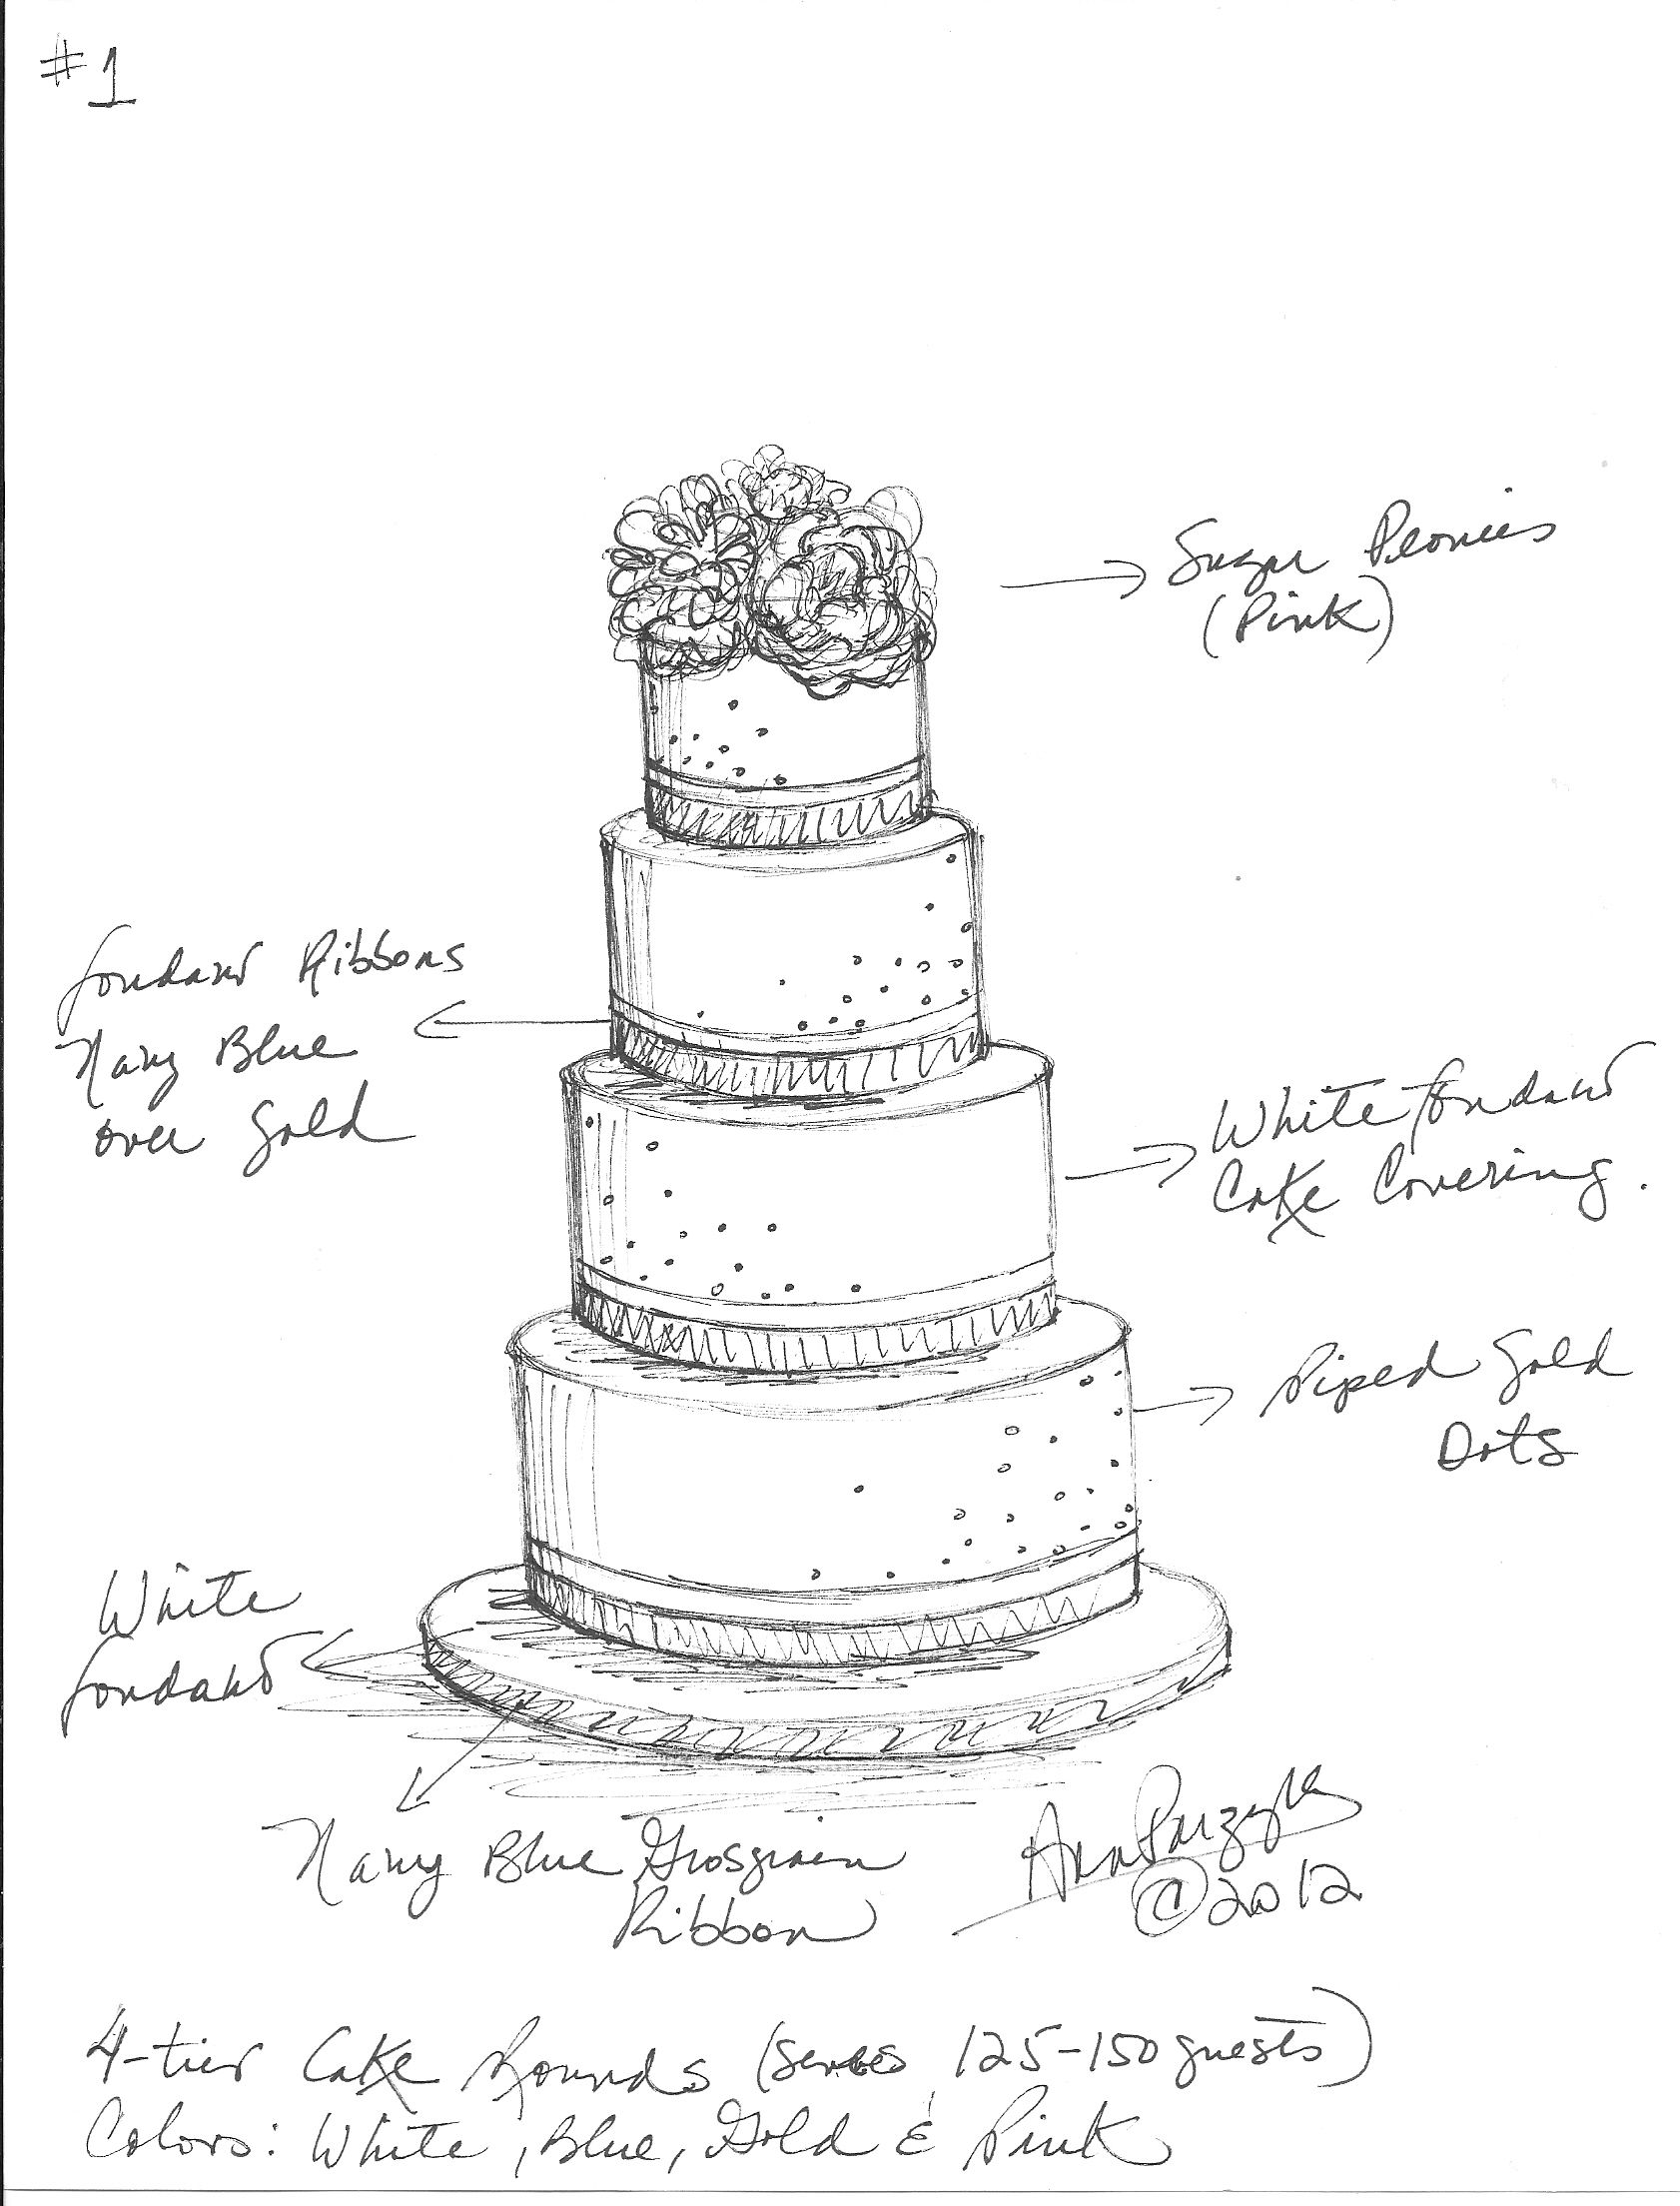 #1
Sugar Peonies
(Pink)
fondant Ribbons
Navy Blue
over Gold
White fondant
Cake Covering.
Piped Gold
Dots
White
fondant
Navy Blue Grosgrain
Ribbon
Ann
©2012
4-tier Cake Rounds (serves 125-150 guests)
Colors: White, Blue, Gold & Pink